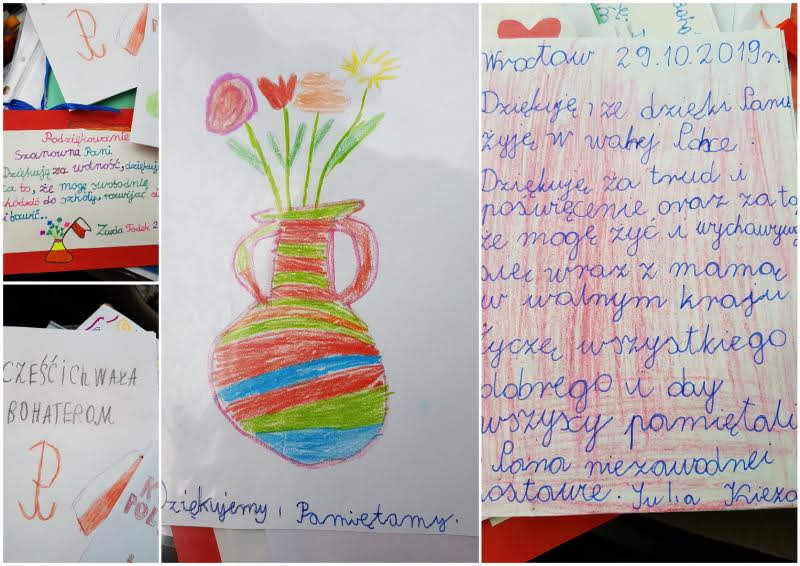 Podziękowanie
Szanowna Pani
Dziękuję za wolność, dziękuj
za to, że mogę swobodnie
chodzić do szkoły, rozwijać si
i bawić..
Zuzia Fadek 2
CZEŚĆ i Ch WAŁA
BOHATEROM
K
POL
Dziękujemy i Pamiętamy.
Wrocław 29.10.2019r.
Dziękuję, że dzięki Panu
żyję w wolnej Polsce.
Dziękuję za trud i
poświęcenie oraz za to
że mogę żyć i wychowywa
się wraz z mamą
w wolnym kraju
Życzę wszystkiego
dobrego i aby
wszyscy pamiętali
Pana
postawie. Julia Kieza